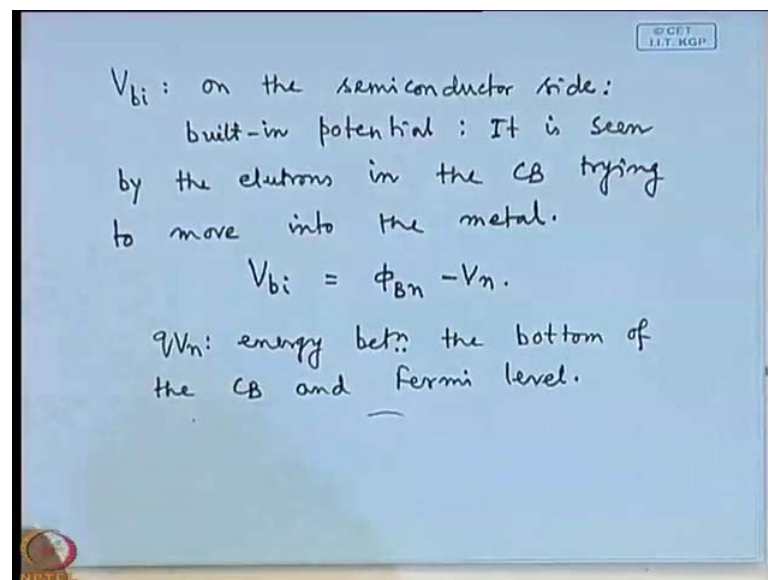 © CET
I.I.T. KGP
V_bi : on the semiconductor side :
built-in potential : It is seen
by the elutrons in the CB trying
to move into the metal.
V_bi = ϕ_Bn - V_n .
qV_n : energy betn. the bottom of
the CB and Fermi level.
NPTEL